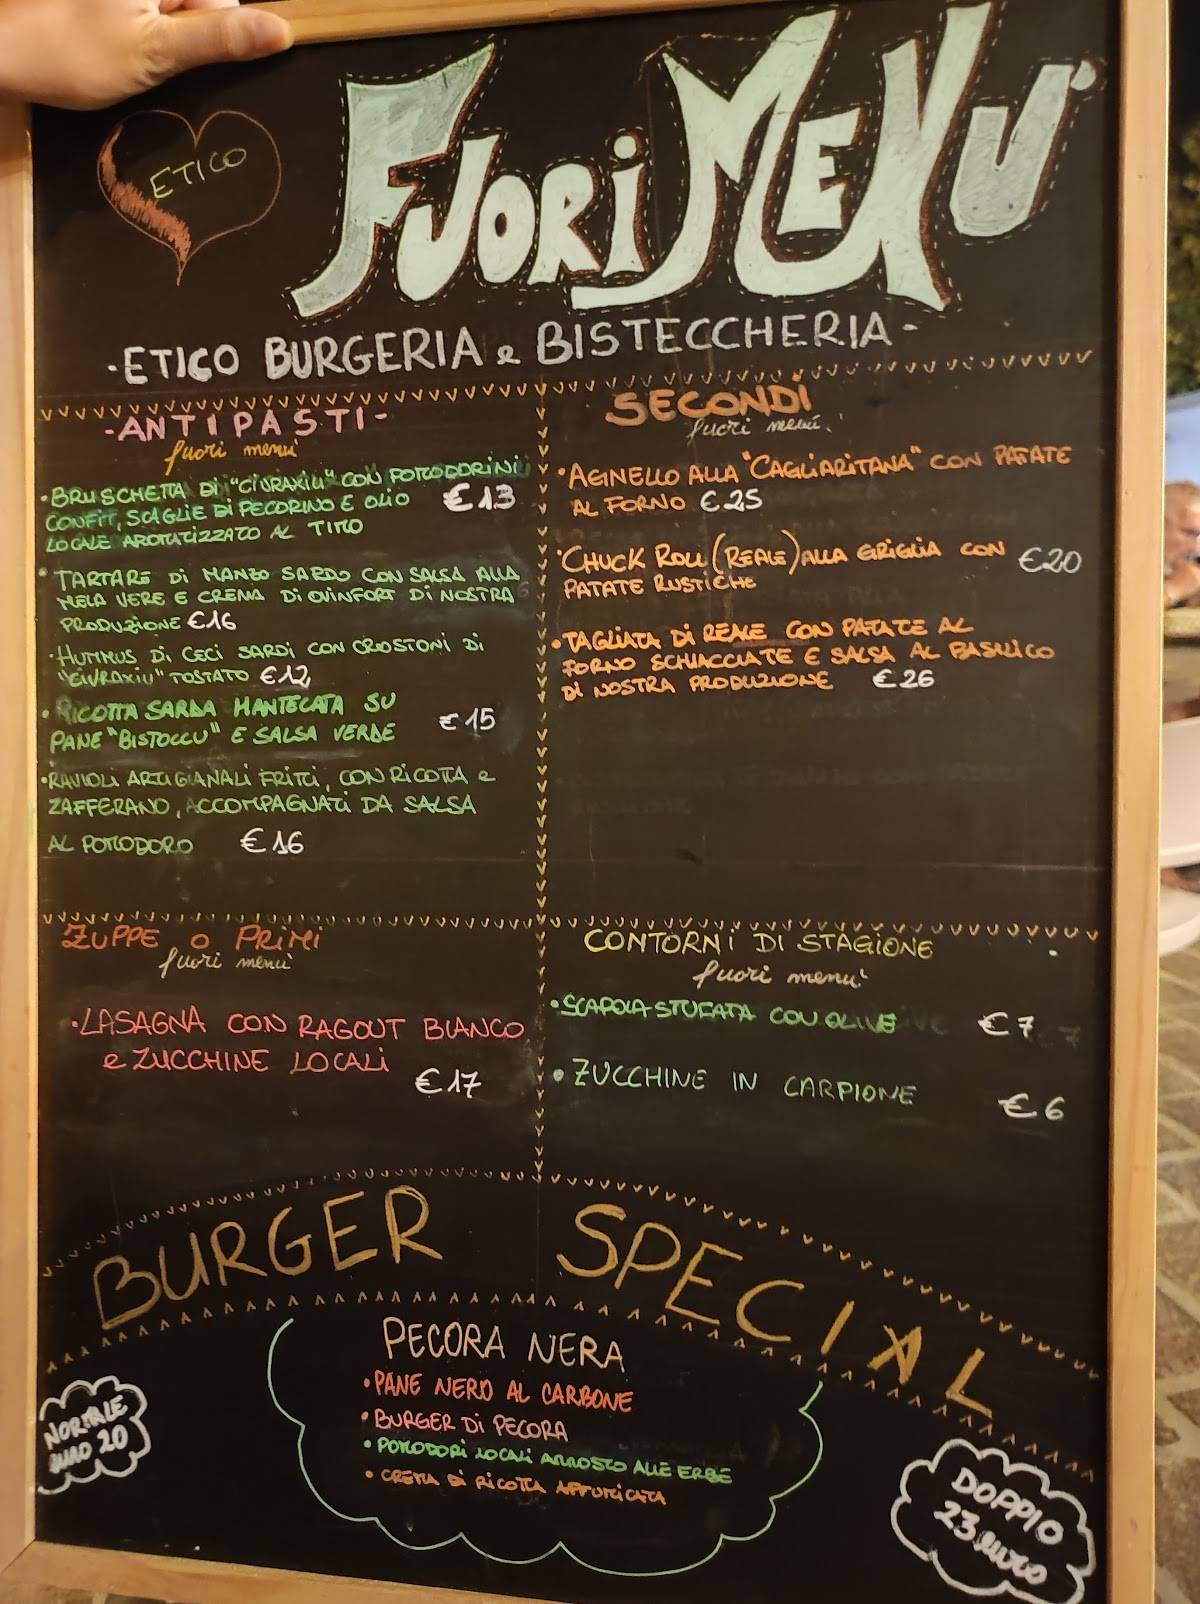 ETICO
FUORI MENU'
- ETICO BURGERIA e BISTECCHERIA -
- ANTIPASTI -
fuori menu'
• BRUSCHETTA DI "CIVRAXIU" CON POMODORINI
CONFIT, SCAGLIE DI PECORINO E OLIO €13
LOCALE AROMATIZZATO AL TIMO
• TARTARE DI MANZO SARDO CON SALSA ALLA
MELA VERE E CREMA DI OVINFORT DI NOSTRA
PRODUZIONE €16
• HUMMUS DI CECI SARDI CON CROSTONI DI
"CIVRAXIU" TOSTATO €12
• RICOTTA SARDA MANTECATA SU
PANE "BISTOCCU" E SALSA VERDE €15
• RAVIOLI ARTIGIANALI FRITTI, CON RICOTTA e
ZAFFERANO, ACCOMPAGNATI DA SALSA
AL POMODORO €16
SECONDI
fuori menu'
• AGNELLO ALLA "CAGLIARITANA" CON PATATE
AL FORNO €25
• CHUCK ROLL (REALE) ALLA GRIGLIA CON €20
PATATE RUSTICHE
• TAGLIATA DI REALE CON PATATE AL
FORNO SCHIACCIATE E SALSA AL BASILICO
DI NOSTRA PRODUZIONE €26
ZUPPE O PRIMI
fuori menu'
• LASAGNA CON RAGOUT BIANCO
e ZUCCHINE LOCALI
€17
CONTORNI DI STAGIONE
fuori menu'
• SCAROLA STUFATA CON OLIVE €7
• ZUCCHINE IN CARPIONE €6
BURGER SPECIAL
PECORA NERA
• PANE NERO AL CARBONE
• BURGER DI PECORA
• POMODORI LOCALI ARROSTO ALLE ERBE
• CREMA DI RICOTTA AFFUMICATA
NORMALE
euro 20
DOPPIO
23 euro